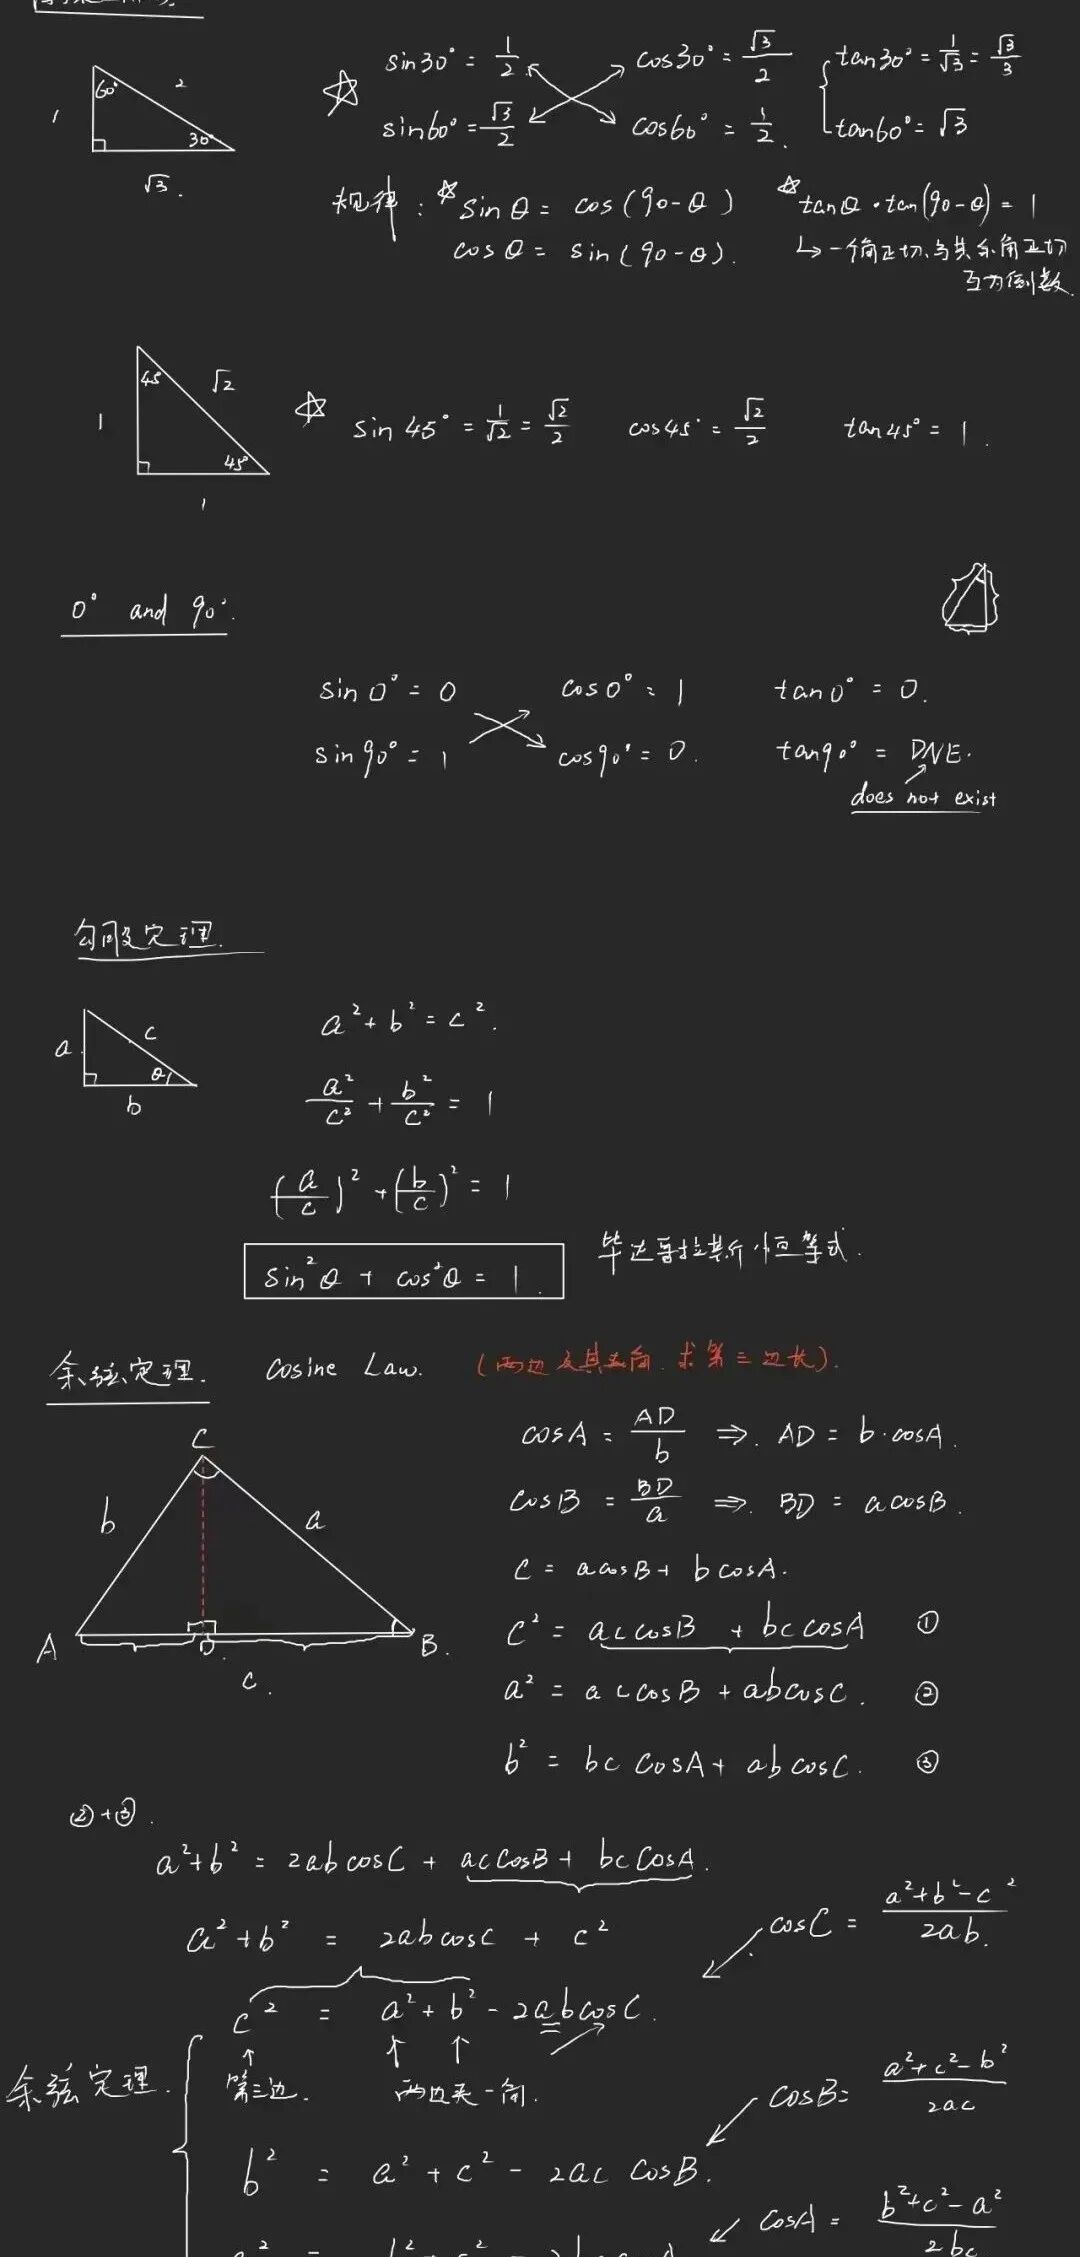 60° 2
1
30°
√3.
sin30° = 1/2 cos30° = √3/2 tan30° = 1/√3 = √3/3
sin60° = √3/2 cos60° = 1/2. tan60° = √3
规律: ☆ sinθ = cos(90-θ) ☆ tanθ·tan(90-θ) = 1
cosθ = sin(90-θ). ↳ 一个角正切与其余角正切
互为倒数.
45° √2
1
45°
1
sin 45° = 1/√2 = √2/2 cos45° = √2/2 tan45° = 1.
0° and 90°.
sin0° = 0 cos0° = 1 tan0° = 0.
sin90° = 1 cos90° = 0. tan90° = DNE.
does not exist
勾股定理.
a c θ
b
a² + b² = c².
a²/c² + b²/c² = 1
(a/c)² + (b/c)² = 1
sin²θ + cos²θ = 1. 毕达哥拉斯恒等式.
余弦定理. Cosine Law. (两边及其夹角. 求第三边长).
C
b a
A D B.
c.
cosA = AD/b ⇒. AD = b·cosA.
cosB = BD/a ⇒. BD = acosB.
c = acosB + bcosA.
c² = accosB + bccosA ①
a² = accosB + abcosC. ②
b² = bc cosA + abcosC. ③
②+③.
a²+b² = 2abcosC + accosB + bccosA.
a²+b² = 2abcosC + c² cosC = (a²+b²-c²)/2ab.
c² = a² + b² - 2abcosC.
余弦定理. 第三边. 两边夹一角. cosB = (a²+c²-b²)/2ac
b² = a² + c² - 2ac cosB.
cosA = (b²+c²-a²)/2bc